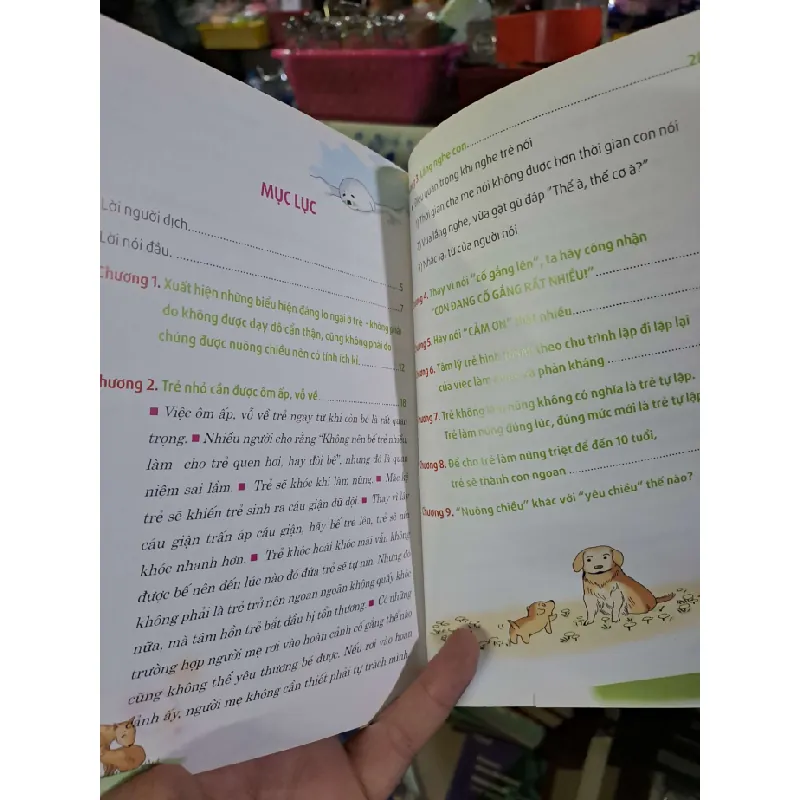 MỤC LỤC
Lời người dịch 5
Lời nói đầu. 7
Chương 1. Xuất hiện những biểu hiện đáng lo ngại ở trẻ - không phải
do không được dạy dỗ cẩn thận, cũng không phải do
chúng được nuông chiều nên có tính ích kỉ. 12
Chương 2. Trẻ nhỏ cần được ôm ấp, vỗ về 18
■ Việc ôm ấp, vỗ về trẻ ngay từ khi còn bé là rất quan
trọng. ■ Nhiều người cho rằng "Không nên bế trẻ nhiều,
làm cho trẻ quen hơi, hay đòi bế", nhưng đó là quan
niệm sai lầm. ■ Trẻ sẽ khóc khi làm nũng. ■ Mặc kệ
trẻ sẽ khiến trẻ sinh ra cáu giận dữ dội. ■ Thay vì lấy
cáu giận trấn áp cáu giận, hãy bế trẻ lên, trẻ sẽ nín
khóc nhanh hơn. ■ Trẻ khóc hoài khóc mãi vẫn không
được bế nên đến lúc nào đó đứa trẻ sẽ tự nín. Nhưng đó
không phải là trẻ trở nên ngoan ngoãn không quấy khóc
nữa, mà tâm hồn trẻ bắt đầu bị tổn thương. ■ Có những
trường hợp người mẹ rơi vào hoàn cảnh cố gắng thế nào
cũng không thể yêu thương bé được. Nếu rơi vào hoàn
cảnh ấy, người mẹ không cần thiết phải tự trách mình.
3. Lắng nghe con
quan trọng khi nghe trẻ nói
1) Thời gian cha mẹ nói không được hơn thời gian con nói
2) Vừa lắng nghe, vừa gật gù đáp "Thế à, thế cơ à?"
3) Nhắc lại từ của người nói
4. Thay vì nói "cố gắng lên", ta hãy công nhận
"CON ĐANG CỐ GẮNG RẤT NHIỀU!"
Chương 5. Hãy nói "CẢM ƠN" thật nhiều
Chương 6. Tâm lý trẻ hình thành theo chu trình lặp đi lặp lại
của việc làm nũng và phản kháng
Chương 7. Trẻ không làm nũng không có nghĩa là trẻ tự lập.
Trẻ làm nũng đúng lúc, đúng mức mới là trẻ tự lập
Chương 8. Để cho trẻ làm nũng triệt để đến 10 tuổi,
trẻ sẽ thành con ngoan
Chương 9. "Nuông chiều" khác với "yêu chiều" thế nào?